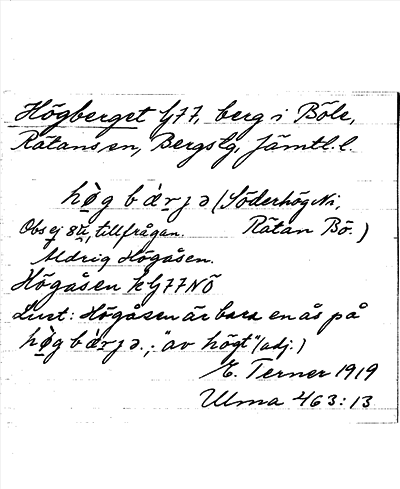 Högberget G77, berg i Böle,
Rätans sn, Bergs tg, Jämtl. l.
hø̀gbárjə (Söderhög Ni,
Obs ej tillfrågan. Rätan Bö.)
Aldrig Högåsen.
Högåsen G77NÖ
Livet: Högåsen är bara en ås på
hø̀gbárjə.; "av högt" (adj.)
E. Terner 1919
Ulma 463:13